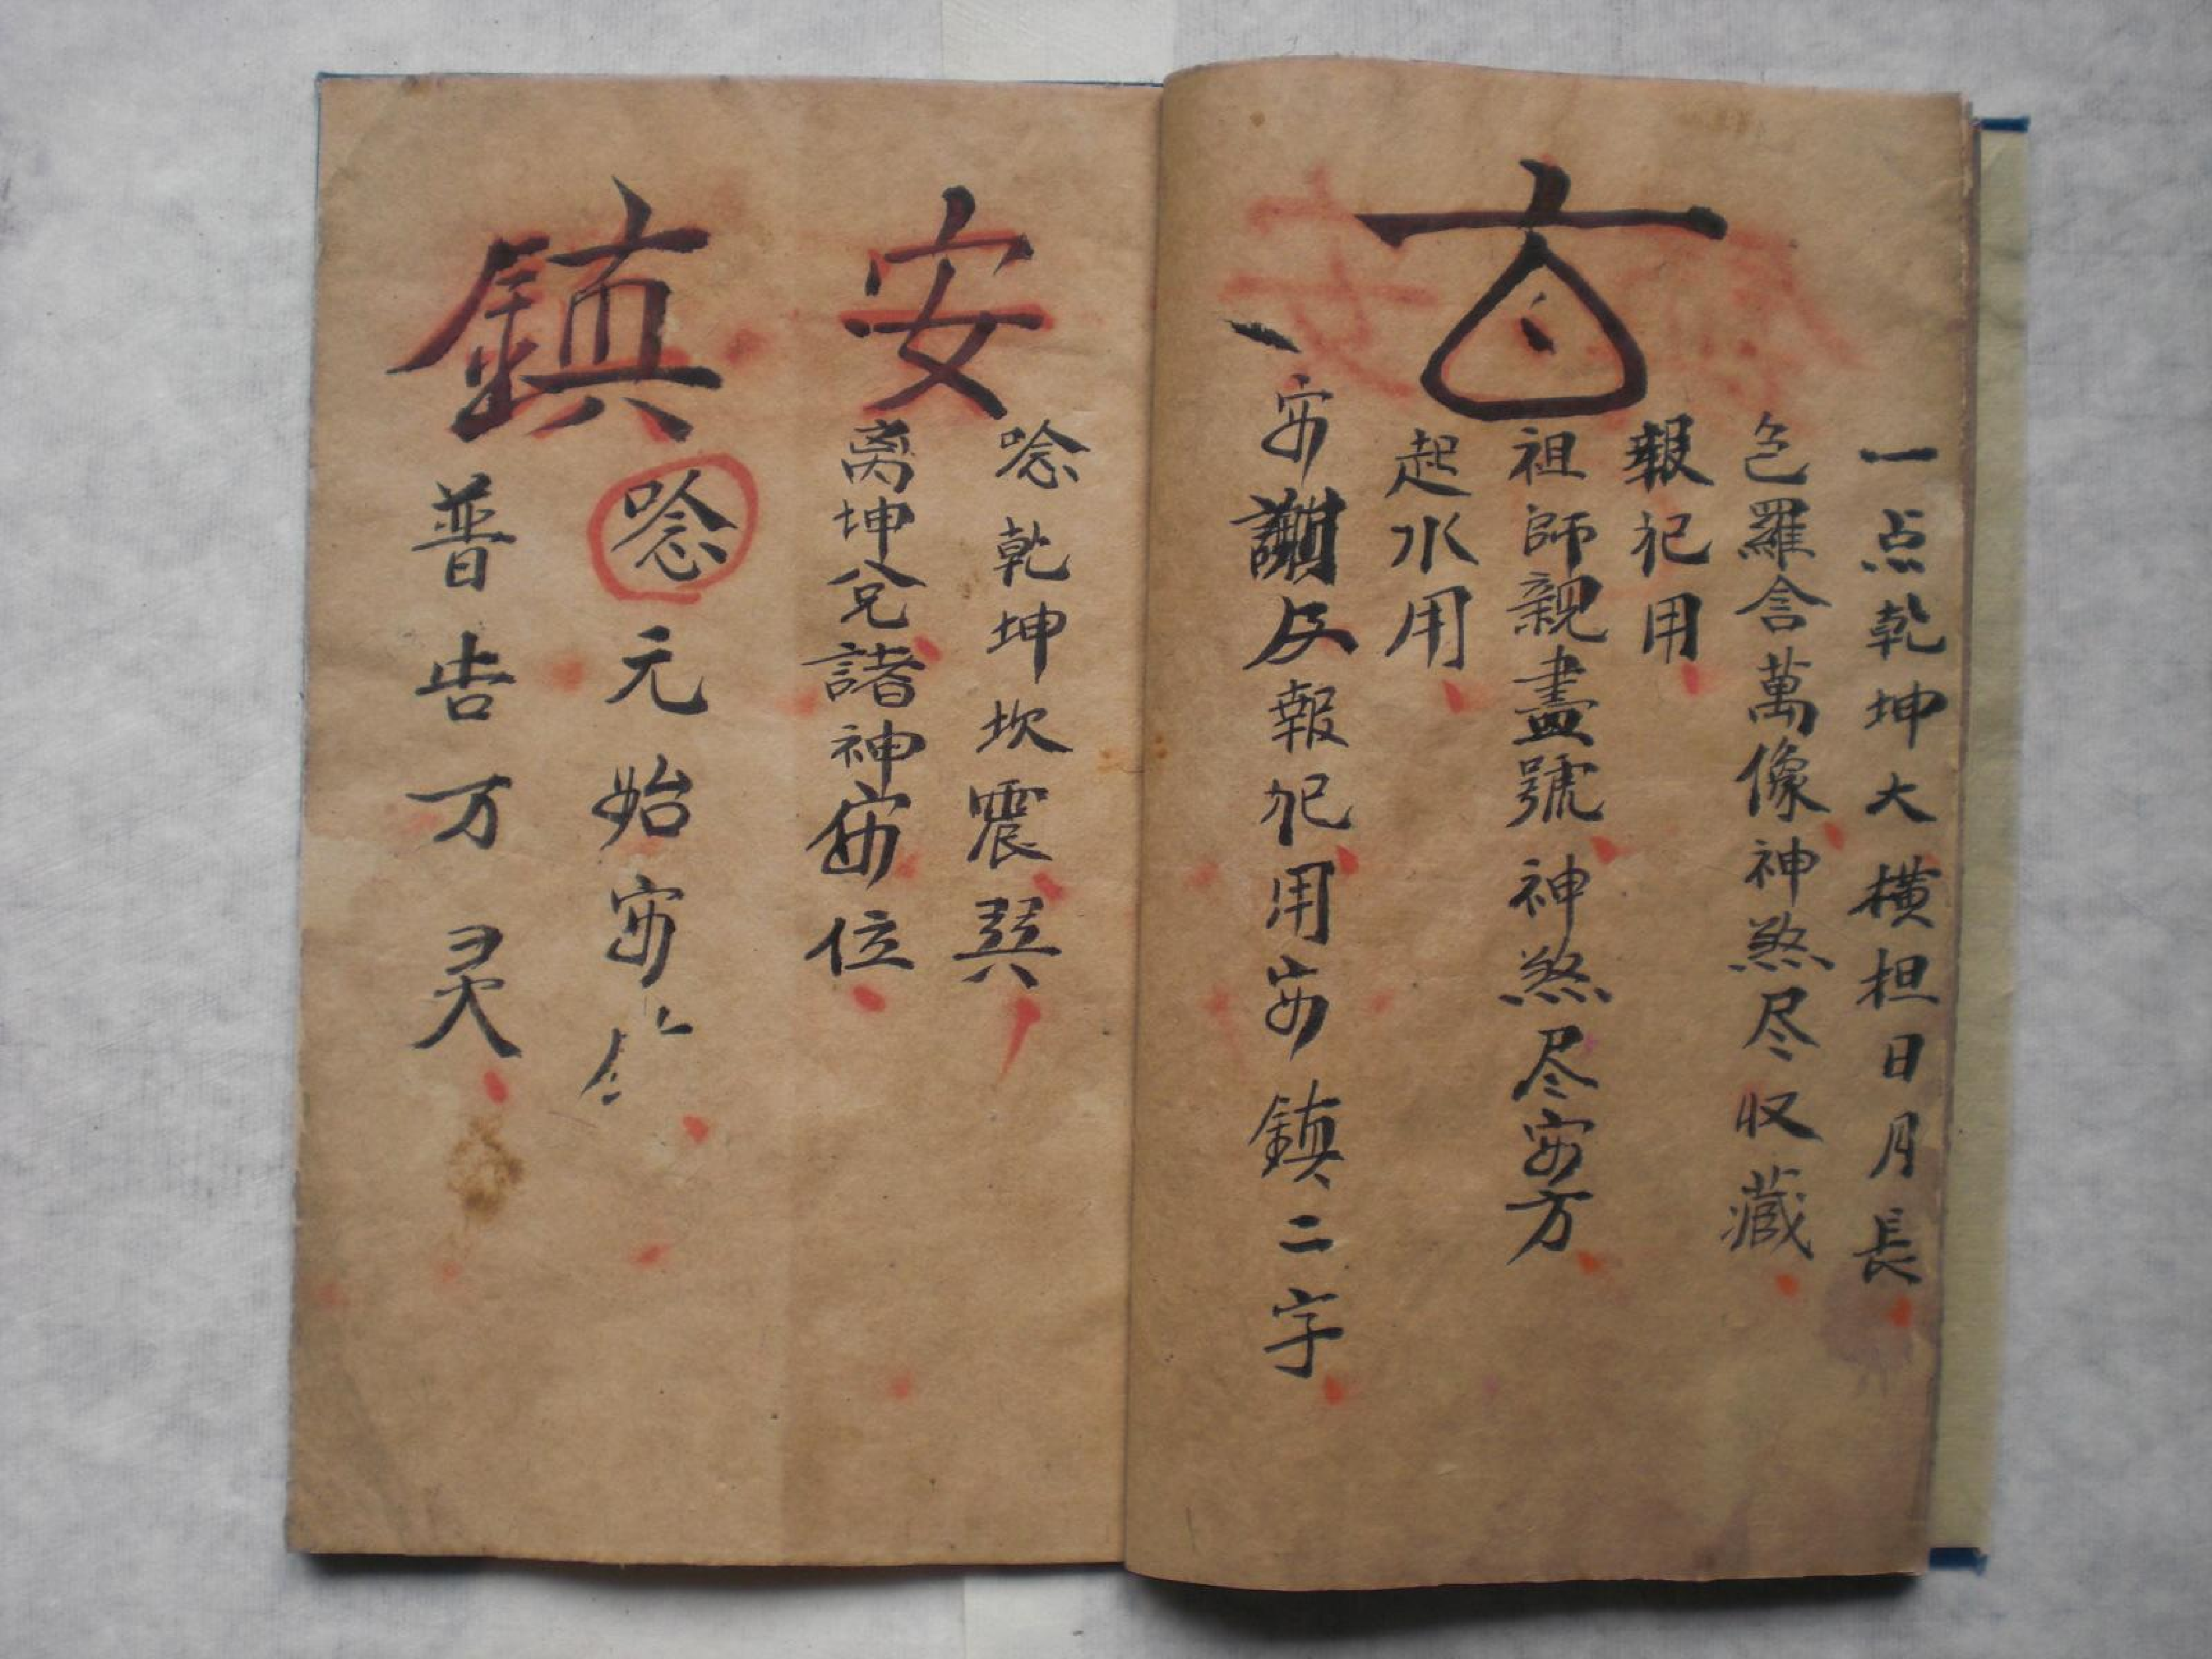 一点乾坤大横担日月長
包羅含萬像神煞尽収藏
報祀用
祖師親畫號神煞尽安方
起水用
安謝及報祀用安鎮二字
安
唸乾坤坎震巽
离坤兌諸神安位
鎮
唸元始安
普告万灵